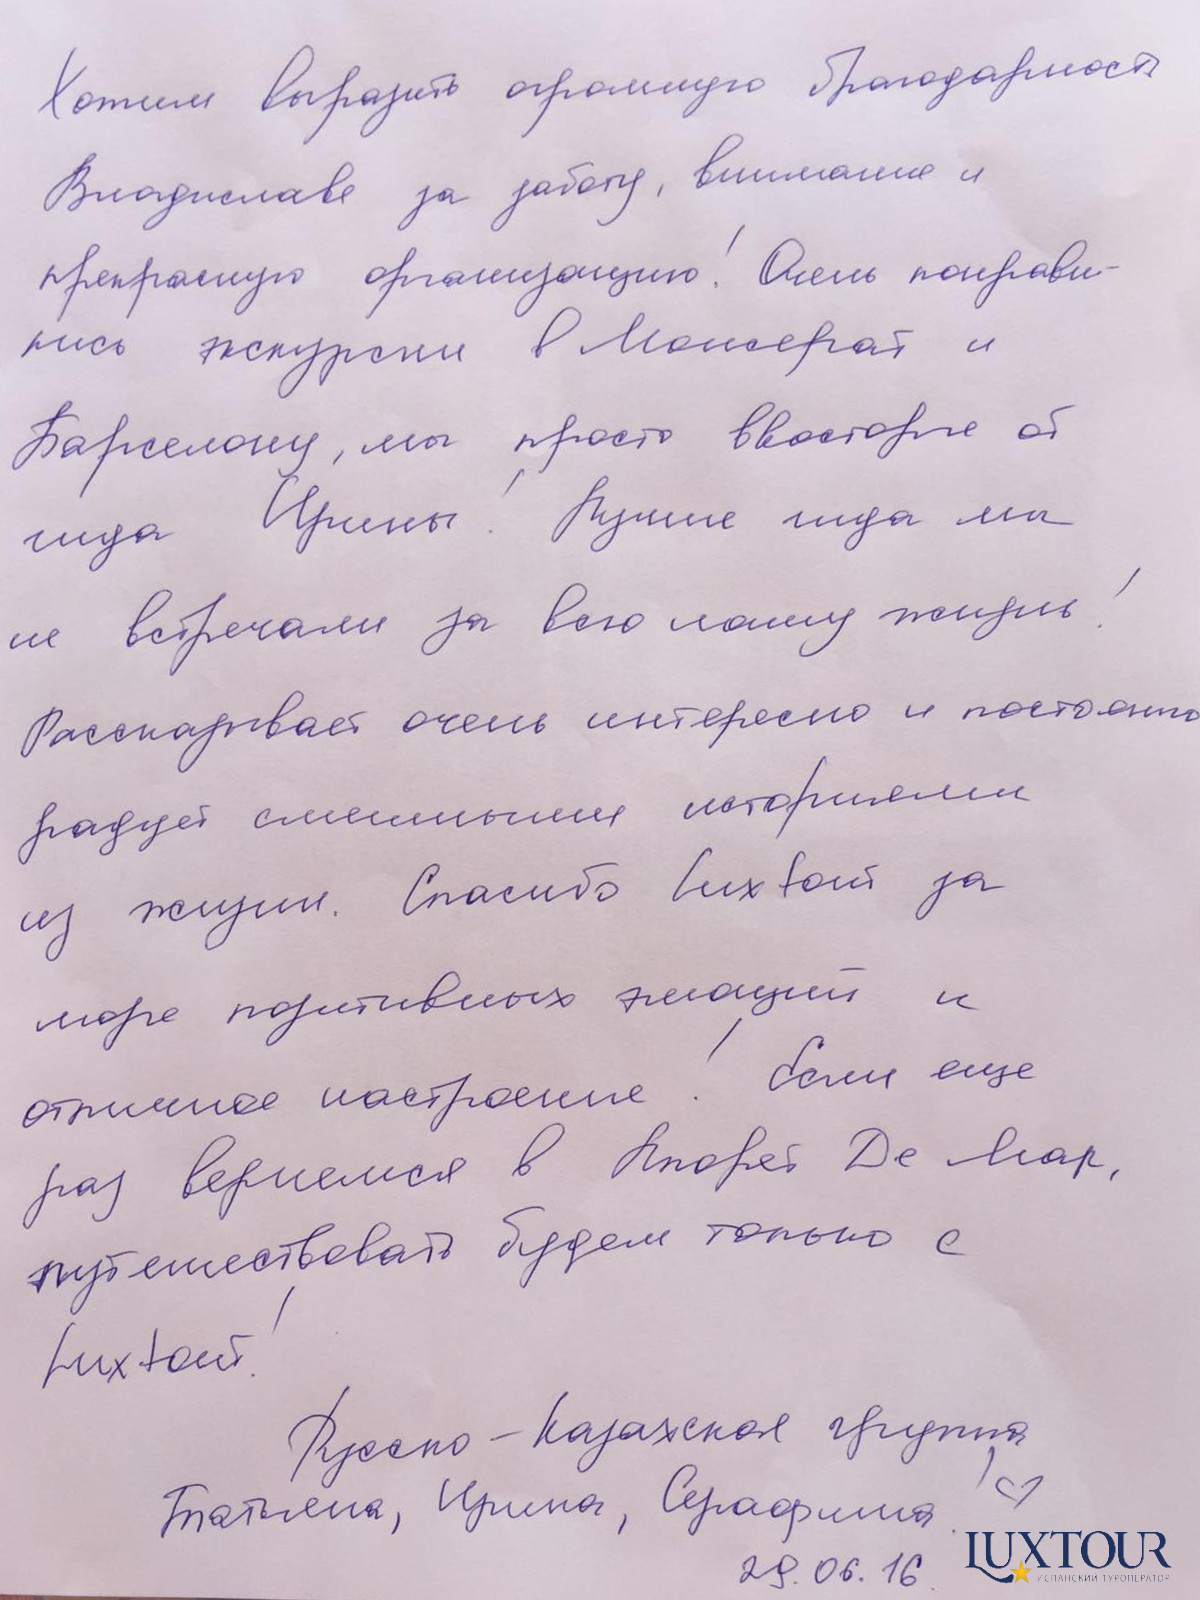 Хотим выразить огромную благодарность
Владиславе за заботу, внимание и
прекрасную организацию! Очень понрави-
лись экскурсии в Монсерат и
Барселону, мы просто ввосторге от
гида Ирины! Лучше гида мы
не встречали за всю нашу жизнь!
Рассказывает очень интересно и постоянно
радует смешными историями
из жизни. Спасибо Luxtour за
море позитивных эмоций и
отличное настроение! Если еще
раз вернемся в Ллорет Де Мар,
путешествовать будем только с
Luxtour!
Русско-казахская группа
Татьяна, Ирина, Серафима!
29.06.16
LUXTOUR
ИСПАНСКИЙ ТУРОПЕРАТОР